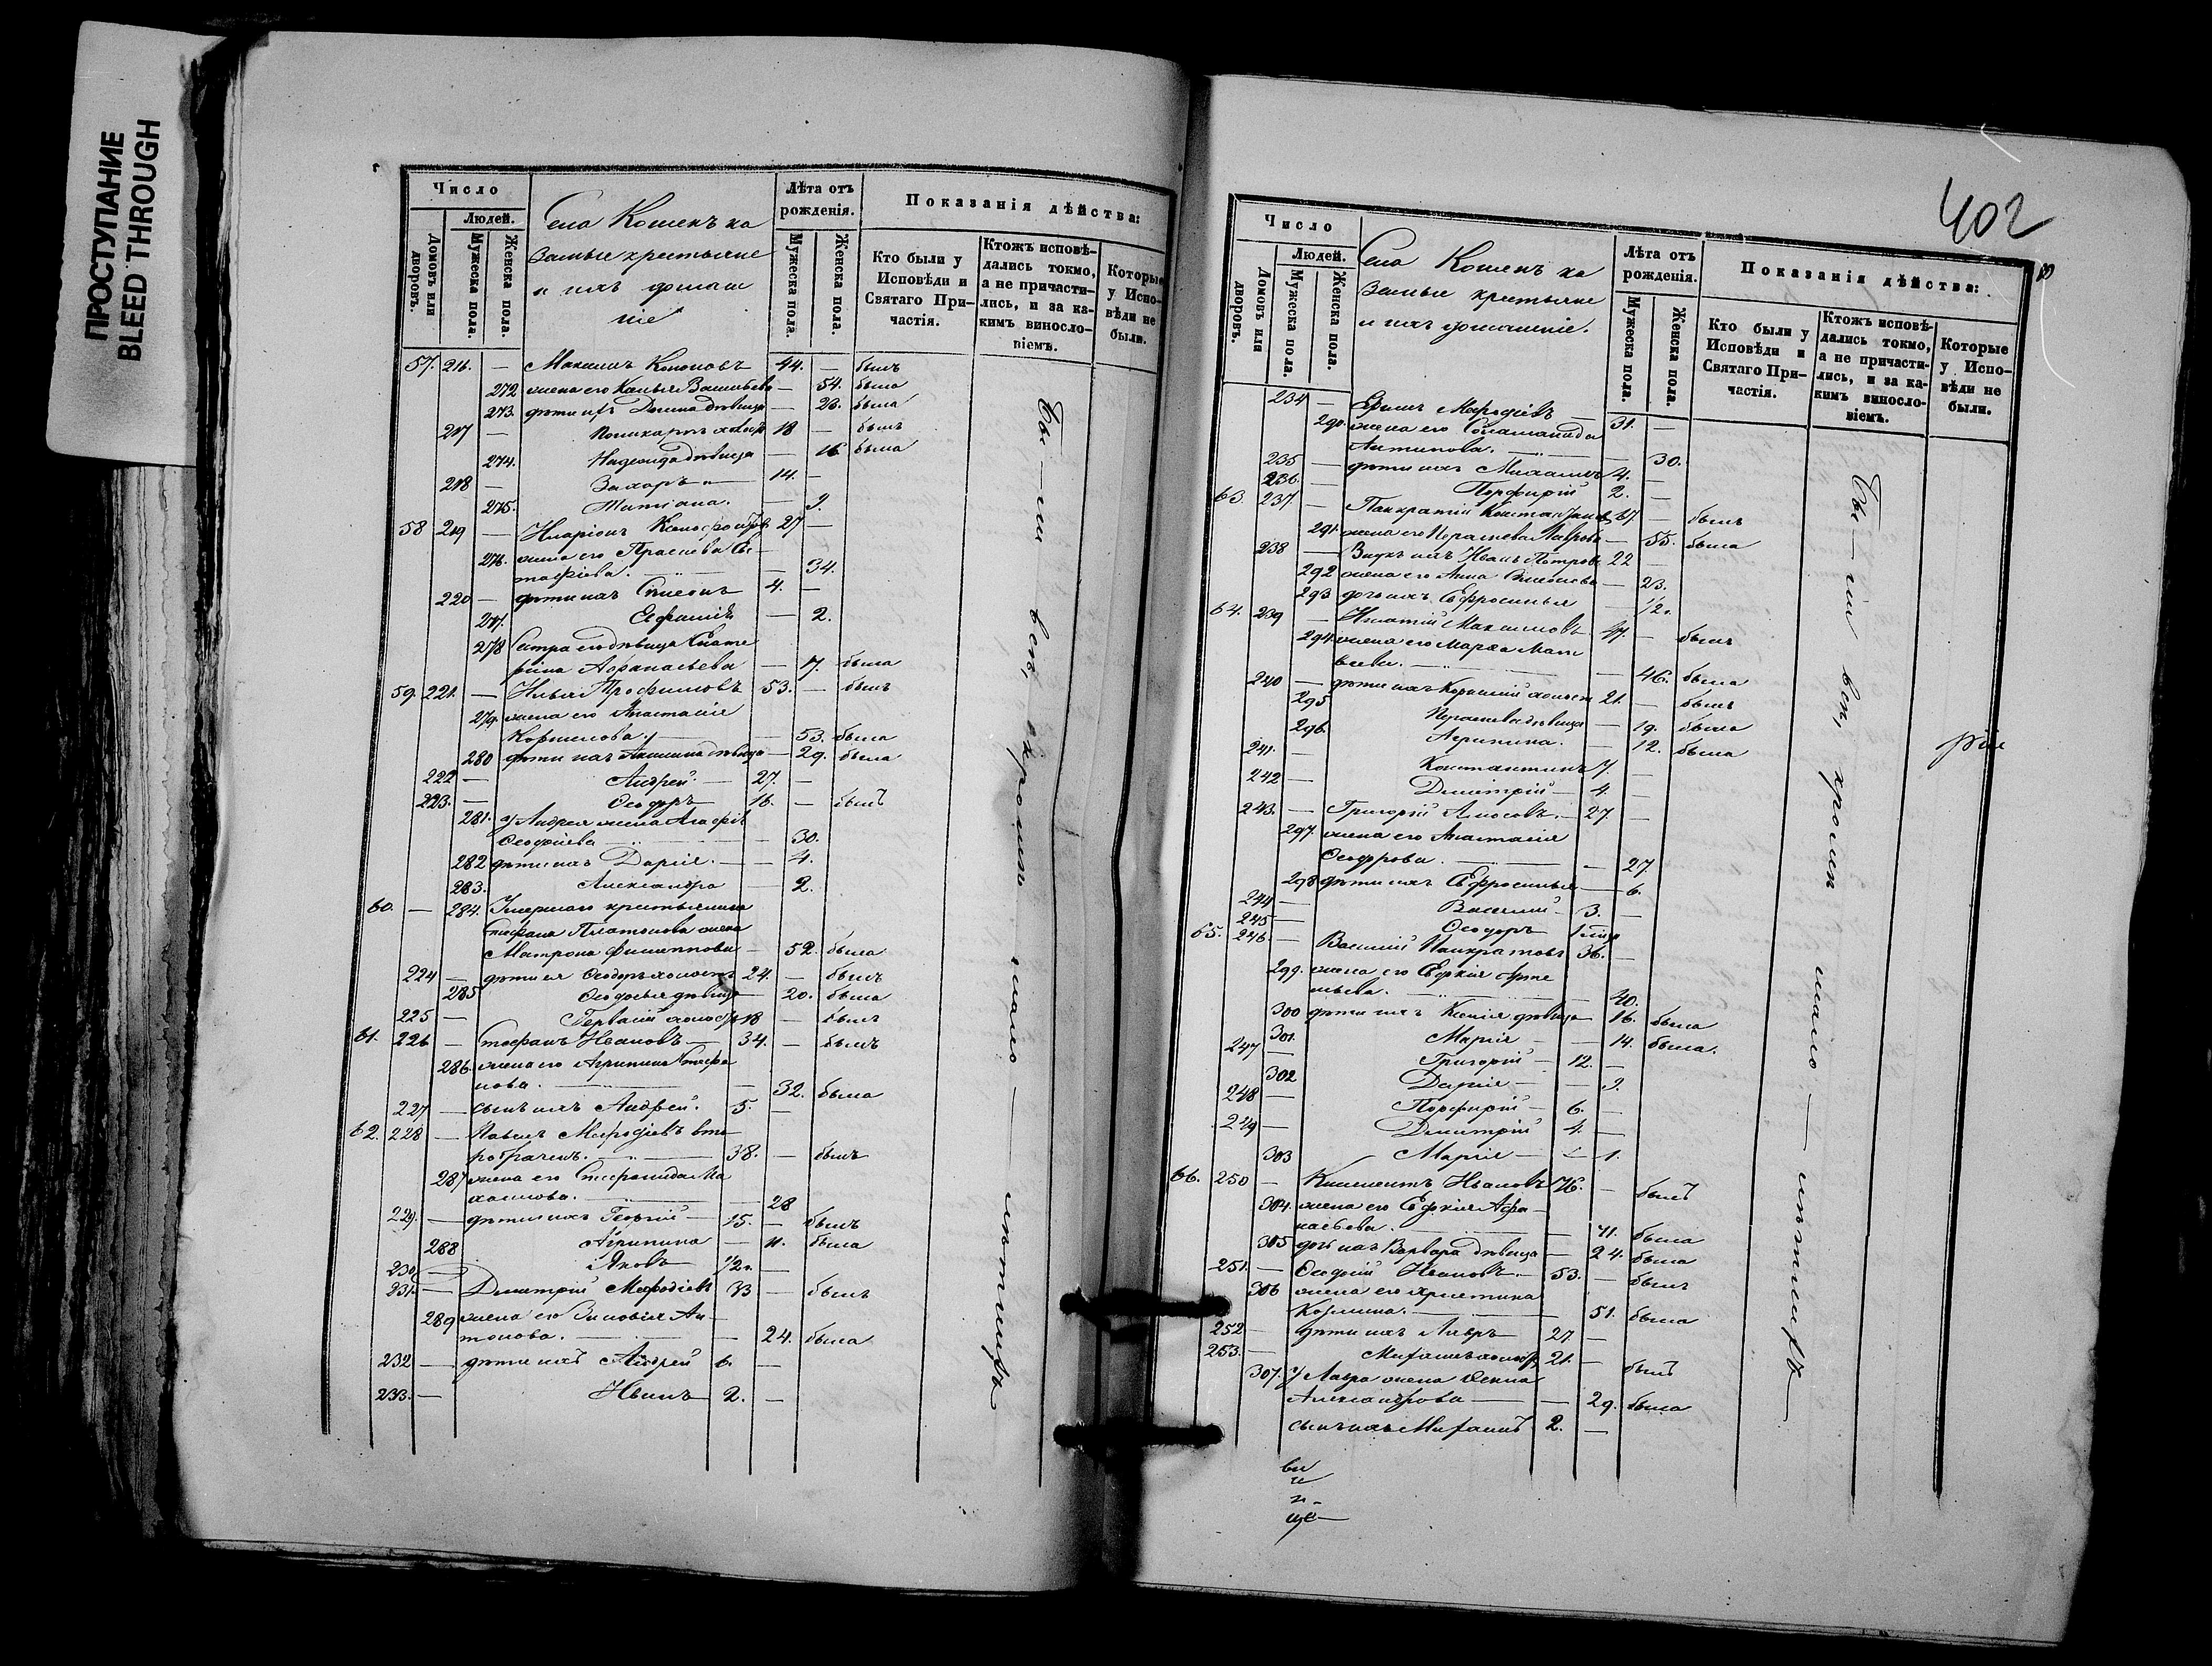 ПРОСТУПАНИЕ
BLEED THROUGH
Число
Людей.
Домовъ или дворовъ.
Мужеска пола.
Женска пола.
Села Кошекъ ка
зенные крестьяне
и ихъ домаш
ніе
Лѣта отъ рожденія.
Мужеска пола.
Женска пола.
Показанія дѣйства:
Кто были у Исповѣди и Святаго Причастія.
Ктожъ исповѣдались токмо, а не причастились, и за какимъ винословіемъ.
Которые у Исповѣди не были.
57. 216. — Максимъ Кононовъ 44. — былъ
272 жена его — 54. была
273. дѣти ихъ Домна дѣвица — 23. была
217 — Поликарпъ холост 18 — былъ
274. Надежда дѣвица — 16 была
218 — Захаръ 14. —
275. Татіана. — 9.
58 219 — Иларіонъ 27 —
276. жена его Праскева Ев
стафіева. — 34.
220 — дѣти ихъ Симеонъ 4. —
277. — 2.
278 Сестра его дѣвица Екате
рина Афанасьева — 17. была
59. 221. — Илья Трофимовъ 53. — былъ
279. жена его Анастасія
Корнилова. — 53. была
280 дѣти ихъ Акилина дѣвица — 29. была
222 — Андрей 27. —
223. — Ѳеодоръ 16. — былъ
281. у Андрея жена Агафія
— 30.
282 дѣти ихъ Дарія. — 4.
283. Александра — 2.
60. — 284. Умершаго крестьянина
Стефана Платонова жена
Матрона Филиппова — 52. была
224 — дѣти ея Ѳеодоръ холостъ 24. — былъ
285 Ѳеодосья дѣвица — 20. была
225 — Гервасій холост 18 — былъ
61. 226 — Стефанъ Ивановъ 34. — былъ
286. жена его Агрипина Стефа
нова. — 32. была
227 — сынъ ихъ Андрей. 5. —
62. 228 — Павелъ Мефодіевъ вто
робрачен. 38. — былъ
287 жена его Стефанида Ма
— 28
229. — дѣти ихъ Георгій 15. — былъ
288 Агрипина — 11. была
230 — Яковъ 1/2 —
231. — Димитрій Мефодіевъ 33 — былъ
289 жена его Зиновія Ан
тонова. — 24. была
232 — дѣти ихъ Андрей 6. —
233. — Иванъ 2. —
402
Число
Людей.
Домовъ или дворовъ.
Мужеска пола.
Женска пола.
Села Кошекъ ка
зенные крестьяне
и ихъ домашніе.
Лѣта отъ рожденія.
Мужеска пола.
Женска пола.
Показанія дѣйства:
Кто были у Исповѣди и Святаго Причастія.
Ктожъ исповѣдались токмо, а не причастились, и за какимъ винословіемъ.
Которые у Исповѣди не были.
234 — Мефодіевъ 31. —
290 жена его Соломанида
Антипова. — 30.
235 — дѣти ихъ Михаилъ 4. —
236. — Порфирій 2. —
63. 237 — Панкратій — былъ
291. жена его Параскева Лаврова — 55. была
238 — Внукъ ихъ Иванъ Петровъ 22 —
292 жена его Анна — 23.
293 дочь ихъ Ефросинья — 1/2.
64. 239 — Игнатій Максимовъ 47. — былъ
294. жена его Марѳа Мат
вѣева. — 46. была
240 — дѣти ихъ Корнилій холост 21. — былъ
295 Параскева дѣвица — 19. была
296. Агрипина. — 12. была
241. — Константинъ 7. —
242 — Димитрій 4. —
243. — Григорій Амосовъ. 27 —
297. жена его Анастасія
Ѳеодорова. — 27.
298 дѣти ихъ Ефросинья — 6.
244 — Василій 3. —
245 — Ѳеодоръ
65. 246. — Василій Панкратовъ 36. —
299. жена его Евдокія Арте
мьева. — 40.
300 дѣти ихъ Ксенія дѣвица — 16. была
301. Марія — 14. была.
247 — Григорій 12. —
302 Дарія — 9.
248 — Порфирій 6. —
249 — Димитрій 4. —
303 Марія — 1.
66. 250 — Климентъ Ивановъ 76. — былъ
304. жена его Евдокія Афа
насьева. — 71. была
305 дочь ихъ Варвара дѣвица — 24. была
251. — Ивановъ. 53. — былъ
306 жена его Христина
Козмина. — 51. была
252 — дѣти ихъ Лавръ 27 —
253. — холост 21. — былъ
307. у Лавра жена Ѳекла
Александрова — 29. была
сынъ ихъ 2. —